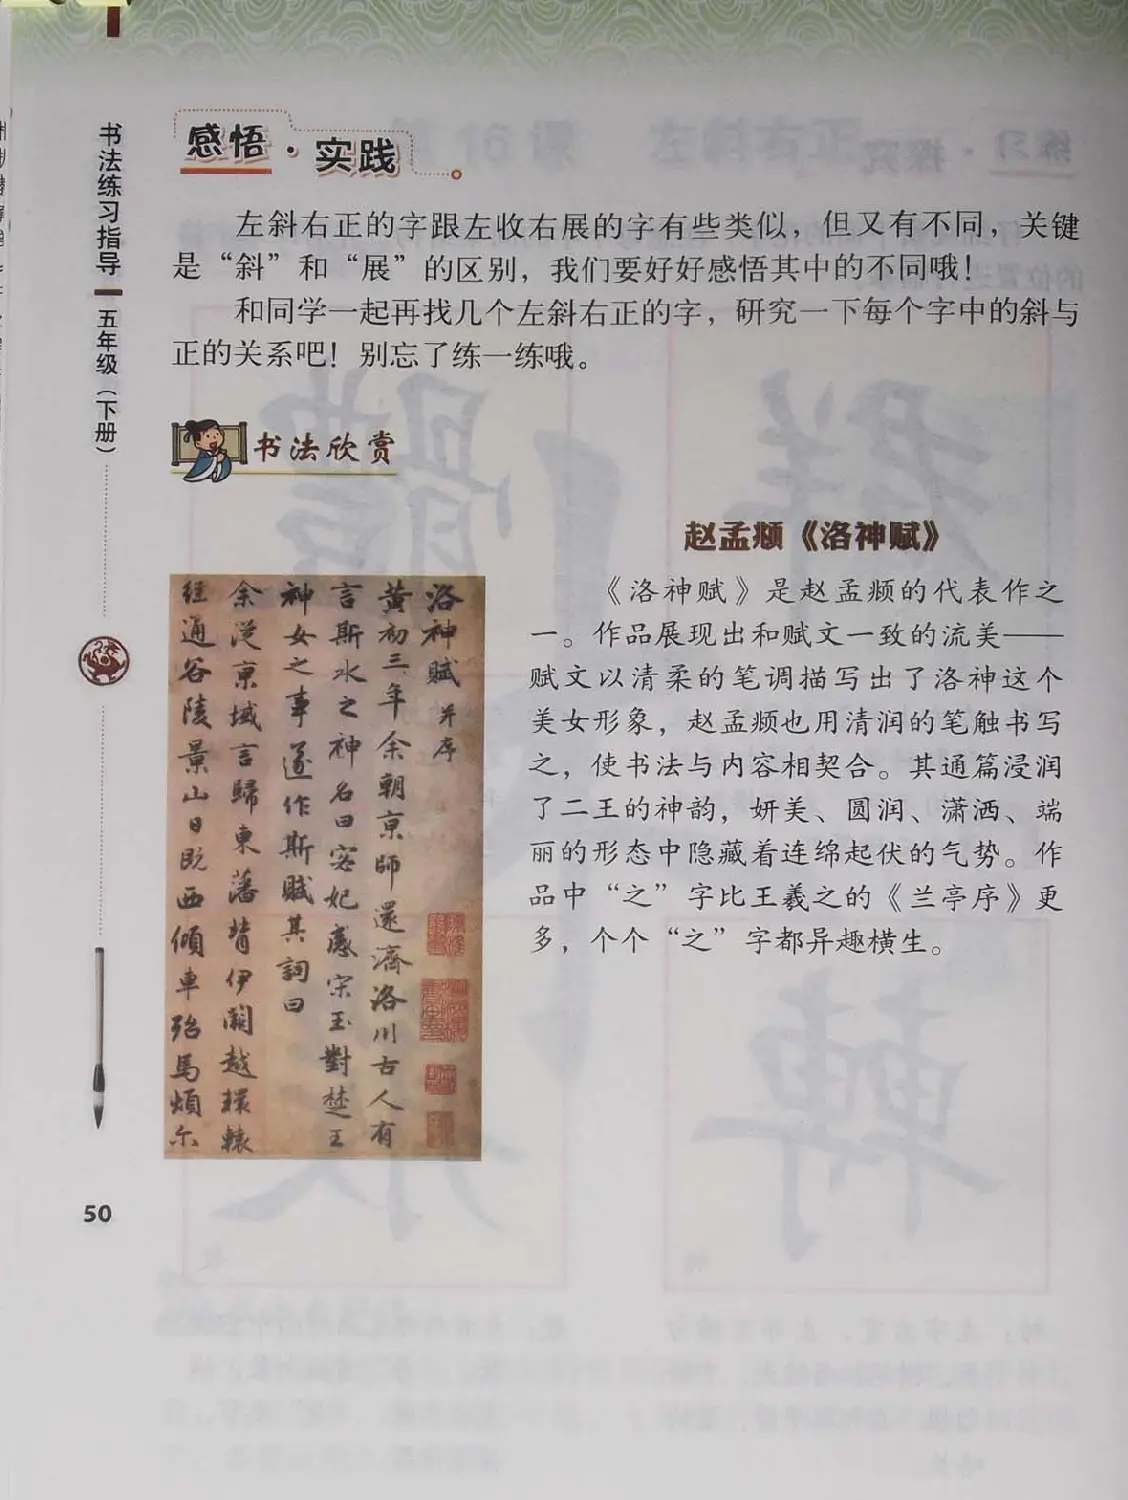 书法练习指导
五年级（下册）
感悟·实践
左斜右正的字跟左收右展的字有些类似，但又有不同，关键
是“斜”和“展”的区别，我们要好好感悟其中的不同哦！
和同学一起再找几个左斜右正的字，研究一下每个字中的斜与
正的关系吧！别忘了练一练哦。
书法欣赏
赵孟頫《洛神赋》
《洛神赋》是赵孟頫的代表作之
一。作品展现出和赋文一致的流美——
赋文以清柔的笔调描写出了洛神这个
美女形象，赵孟頫也用清润的笔触书写
之，使书法与内容相契合。其通篇浸润
了二王的神韵，妍美、圆润、潇洒、端
丽的形态中隐藏着连绵起伏的气势。作
品中“之”字比王羲之的《兰亭序》更
多，个个“之”字都异趣横生。
洛神賦并序
黄初三年余朝京師還濟洛川古人有
言斯水之神名曰宓妃感宋玉對楚王
神女之事遂作斯賦其詞曰
余從京域言歸東藩背伊闕越轘轅
經通谷陵景山日既西傾車殆馬煩尒
50